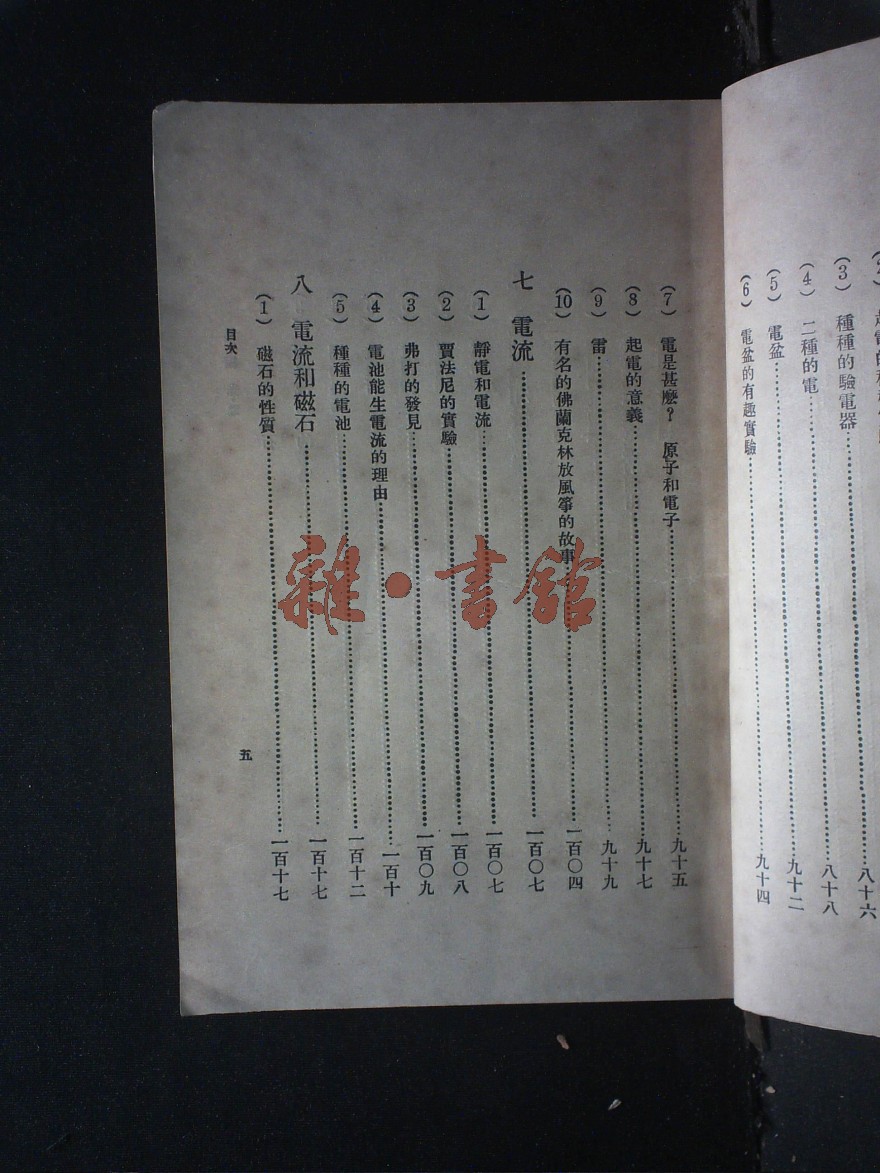 八十六
(3) 種種的驗電器 八十八
(4) 二種的電 九十二
(5) 電盆
(6) 電盆的有趣實驗 九十四
(7) 電是甚麼？ 原子和電子 九十五
(8) 起電的意義 九十七
(9) 雷 九十九
(10) 有名的佛蘭克林放風箏的故事 一百〇四
七 電流 一百〇七
(1) 靜電和電流 一百〇七
(2) 賈法尼的實驗 一百〇八
(3) 弗打的發見 一百〇九
(4) 電池能生電流的理由 一百十
(5) 種種的電池 一百十二
八 電流和磁石 一百十七
(1) 磁石的性質 一百十七
目次
五
雜·書館